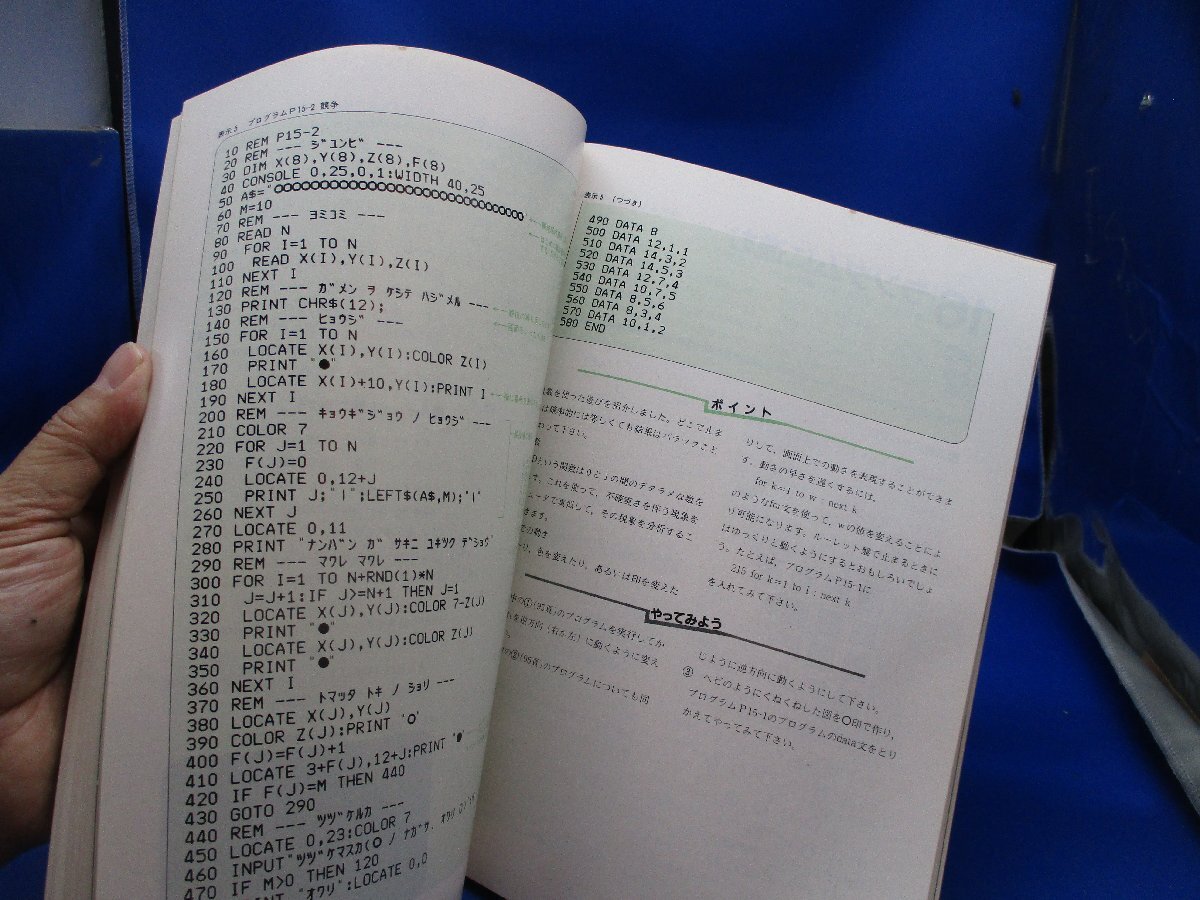 表示5 プログラムP15-2 競争
10 REM P15-2
20 REM --- ジユンビ ---
30 DIM X(8),Y(8),Z(8),F(8)
40 CONSOLE 0,25,0,1:WIDTH 40,25
50 A$="
60 M=10
70 REM --- ヨミコミ ---
80 READ N
90 FOR I=1 TO N
100 READ X(I),Y(I),Z(I)
110 NEXT I
120 REM --- ガメン ヲ ケシテ ハジメル ---
130 PRINT CHR$(12);
140 REM --- ヒョウジ ---
150 FOR I=1 TO N
160 LOCATE X(I),Y(I):COLOR Z(I)
170 PRINT "●"
180 LOCATE X(I)+10,Y(I):PRINT I
190 NEXT I
200 REM --- キョウギジョウ ノ ヒョウジ ---
210 COLOR 7
220 FOR J=1 TO N
230 F(J)=0
240 LOCATE 0,12+J
250 PRINT J;"|";LEFT$(A$,M);"|"
260 NEXT J
270 LOCATE 0,11
280 PRINT "ナンバン ガ サキニ ユキツク デショウ"
290 REM --- マワレ マワレ ---
300 FOR I=1 TO N+RND(1)*N
310 J=J+1:IF J>=N+1 THEN J=1
320 LOCATE X(J),Y(J):COLOR 7-Z(J)
330 PRINT "●"
340 LOCATE X(J),Y(J):COLOR Z(J)
350 PRINT "●"
360 NEXT I
370 REM --- トマッタ トキ ノ ショリ ---
380 LOCATE X(J),Y(J)
390 COLOR Z(J):PRINT "O"
400 F(J)=F(J)+1
410 LOCATE 3+F(J),12+J:PRINT "●"
420 IF F(J)=M THEN 440
430 GOTO 290
440 REM --- ツヅケルカ ---
450 LOCATE 0,23:COLOR 7
460 INPUT"ツヅケマスカ(0 / ナガサ, オワリ
470 IF M>0 THEN 120
"オワリ":LOCATE 0,0
表示5 (つづき)
490 DATA 8
500 DATA 12,1,1
510 DATA 14,3,2
520 DATA 14,5,3
530 DATA 12,7,4
540 DATA 10,7,5
550 DATA 8,5,6
560 DATA 8,3,4
570 DATA 10,1,2
580 END
ポイント
を使った遊びを紹介しました。どこで止ま
は確率的には等しくても結果はバラツクこと
わって下さい。
という関数は0と1の間のデタラメな数を
す。これを使って、不確実さを伴う現象を
ュータで実現して、その現象を分析するこ
きます。
の動き
り、色を変えたり、あるいは印を変えた
りして、画面上での動きを表現することができま
す。動きの早さを遅くするには、
for k=1 to w : next k
のようなfor文を使って、wの値を変えることによ
り可能になります。ルーレット盤で止まるときに
はゆっくりと動くようにするとおもしろいでしょ
う。たとえば、プログラムP15-1に
215 for k=1 to i : next k
を入れてみて下さい。
やってみよう
中の①(95頁)のプログラムを実行してか
を逆方向(右から左)に動くように変え
の②(95頁)のプログラムについても同
じように逆方向に動くようにして下さい。
③ ヘビのようにくねくねした図を○印で作り、
プログラムP15-1のプログラムのdata文をとり
かえてやってみて下さい。